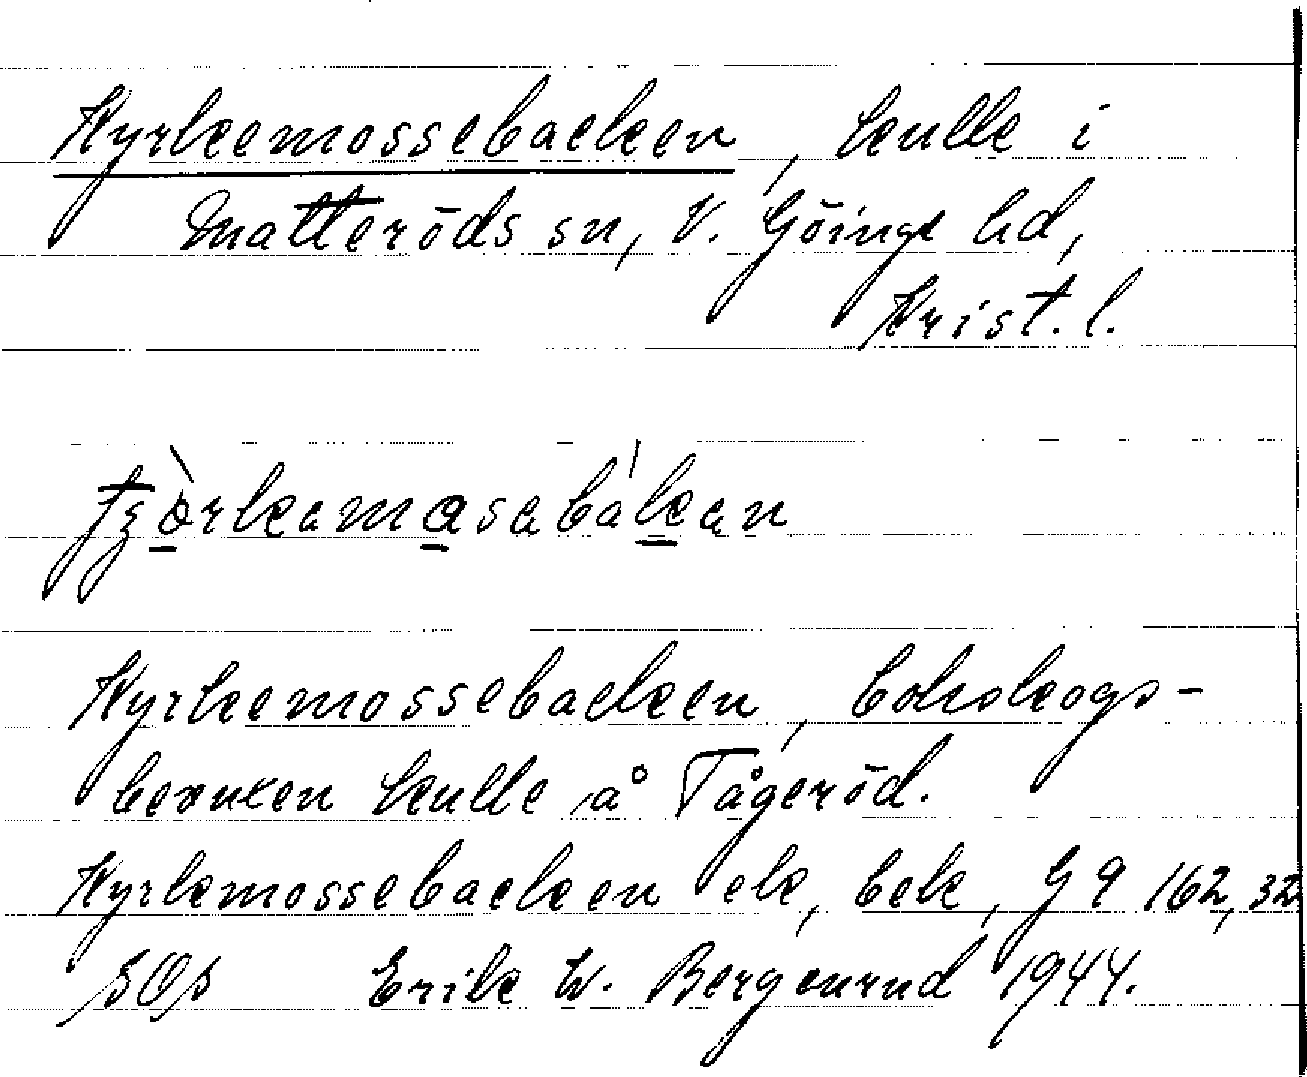 Kyrkemossebacken, kulle i
Matteröds sn, V. Göinge hd,
Krist. l.
Kyrkemossebacken, bokskogs-
bevuxen kulle å Tågeröd.
Kyrkemossebacken ek, bek, G 9 162, 32
SOS Erik W. Bergenrud 1944.